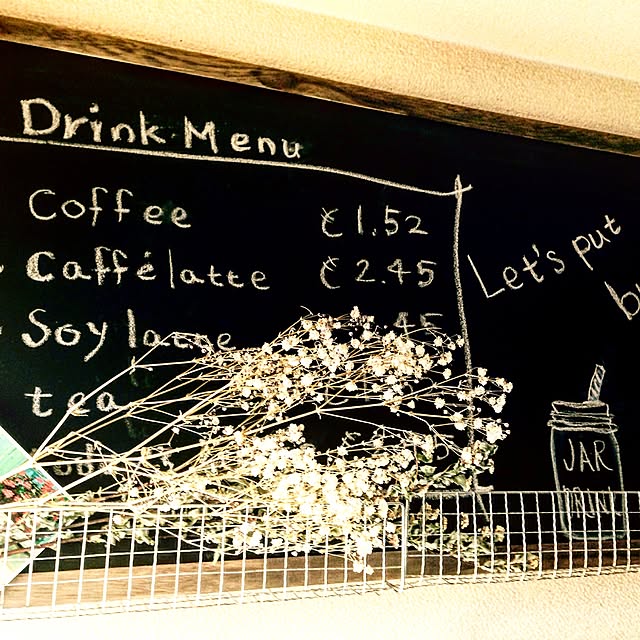 Drink Menu
Coffee € 1.52
Caffélatte € 2.45
Soy latte 45
tea
Let's put
JAR
DRINK